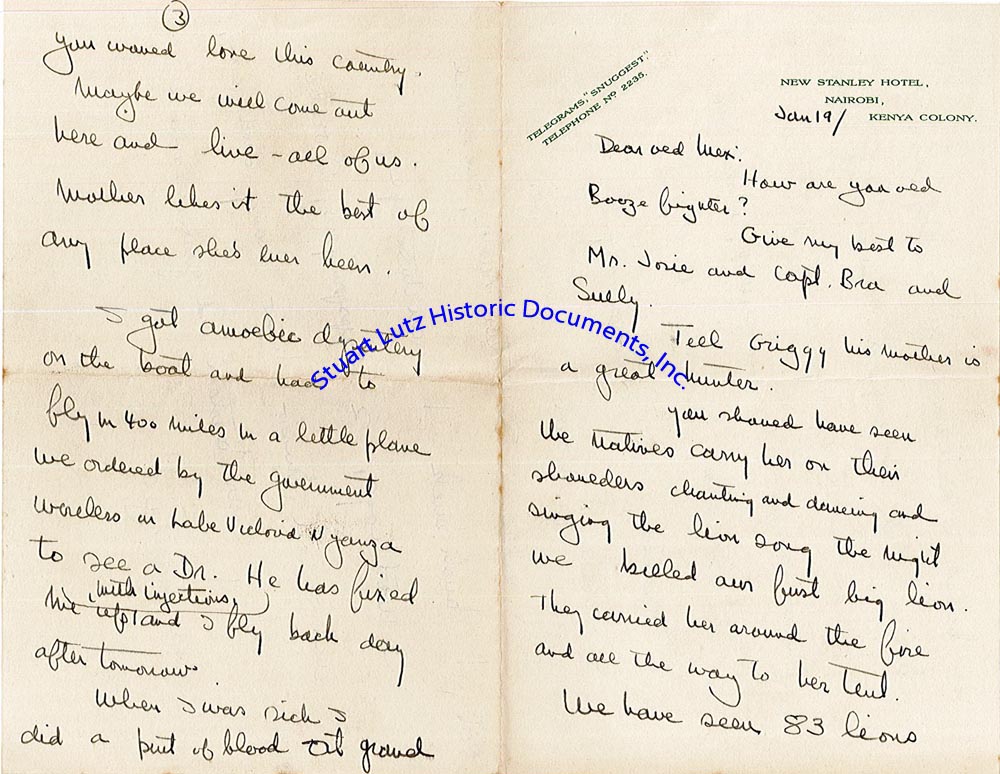 TELEGRAMS, "SNUGGEST."
TELEPHONE Nº 2235.
NEW STANLEY HOTEL,
NAIROBI,
KENYA COLONY.
Jan 19/
Dear old Mex:
How are you old
Booze fighter?
Give my best to
Mr. Josie and Capt. Bra and
Sully.
Tell Griggy his mother is
a great hunter.
You should have seen
the natives carry her on their
shoulders chanting and dancing and
singing the lion song the night
we killed our first big lion.
They carried her around the fire
and all the way to her tent.
We have seen 83 lions
3
you would love this country.
Maybe we will come out
here and live - all of us.
Mother likes it the best of
any place she's ever been.
I got amoebic dysentery
on the boat and had to
fly in 400 miles in a little plane
we ordered by the government
wireless on Lake Victoria Nyanza
to see a Dr. He has fixed
me up with injections, and I fly back day
after tomorrow.
When I was sick I
did a pint of blood at grand
Stuart Lutz Historic Documents, Inc.